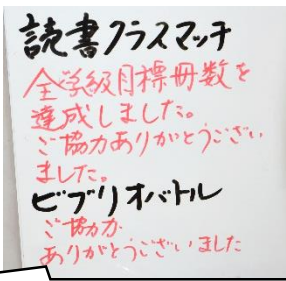 読書クラスマッチ
全学級目標冊数を
達成しました。
ご協力ありがとうござい
ました。
ビブリオバトル
ご協力
ありがとうございました